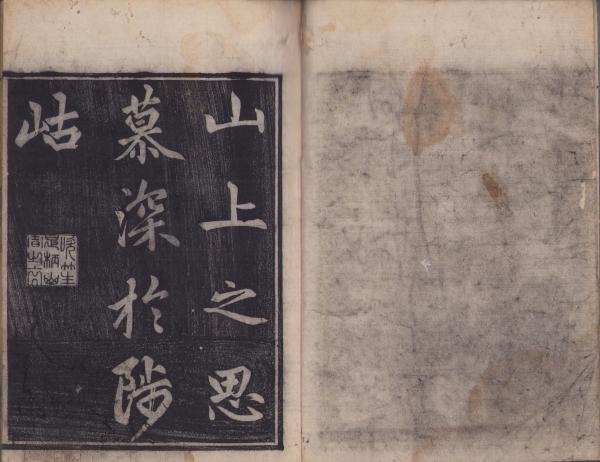 山上之思
慕深於陟
岵